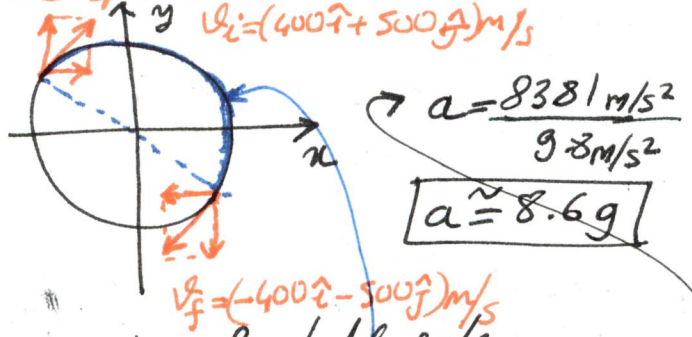 y
v⃗i=(400î+500ĵ)m/s
a=8381m/s²
9.8m/s²
x
a≅8.6g
v⃗f=(-400î-500ĵ)m/s